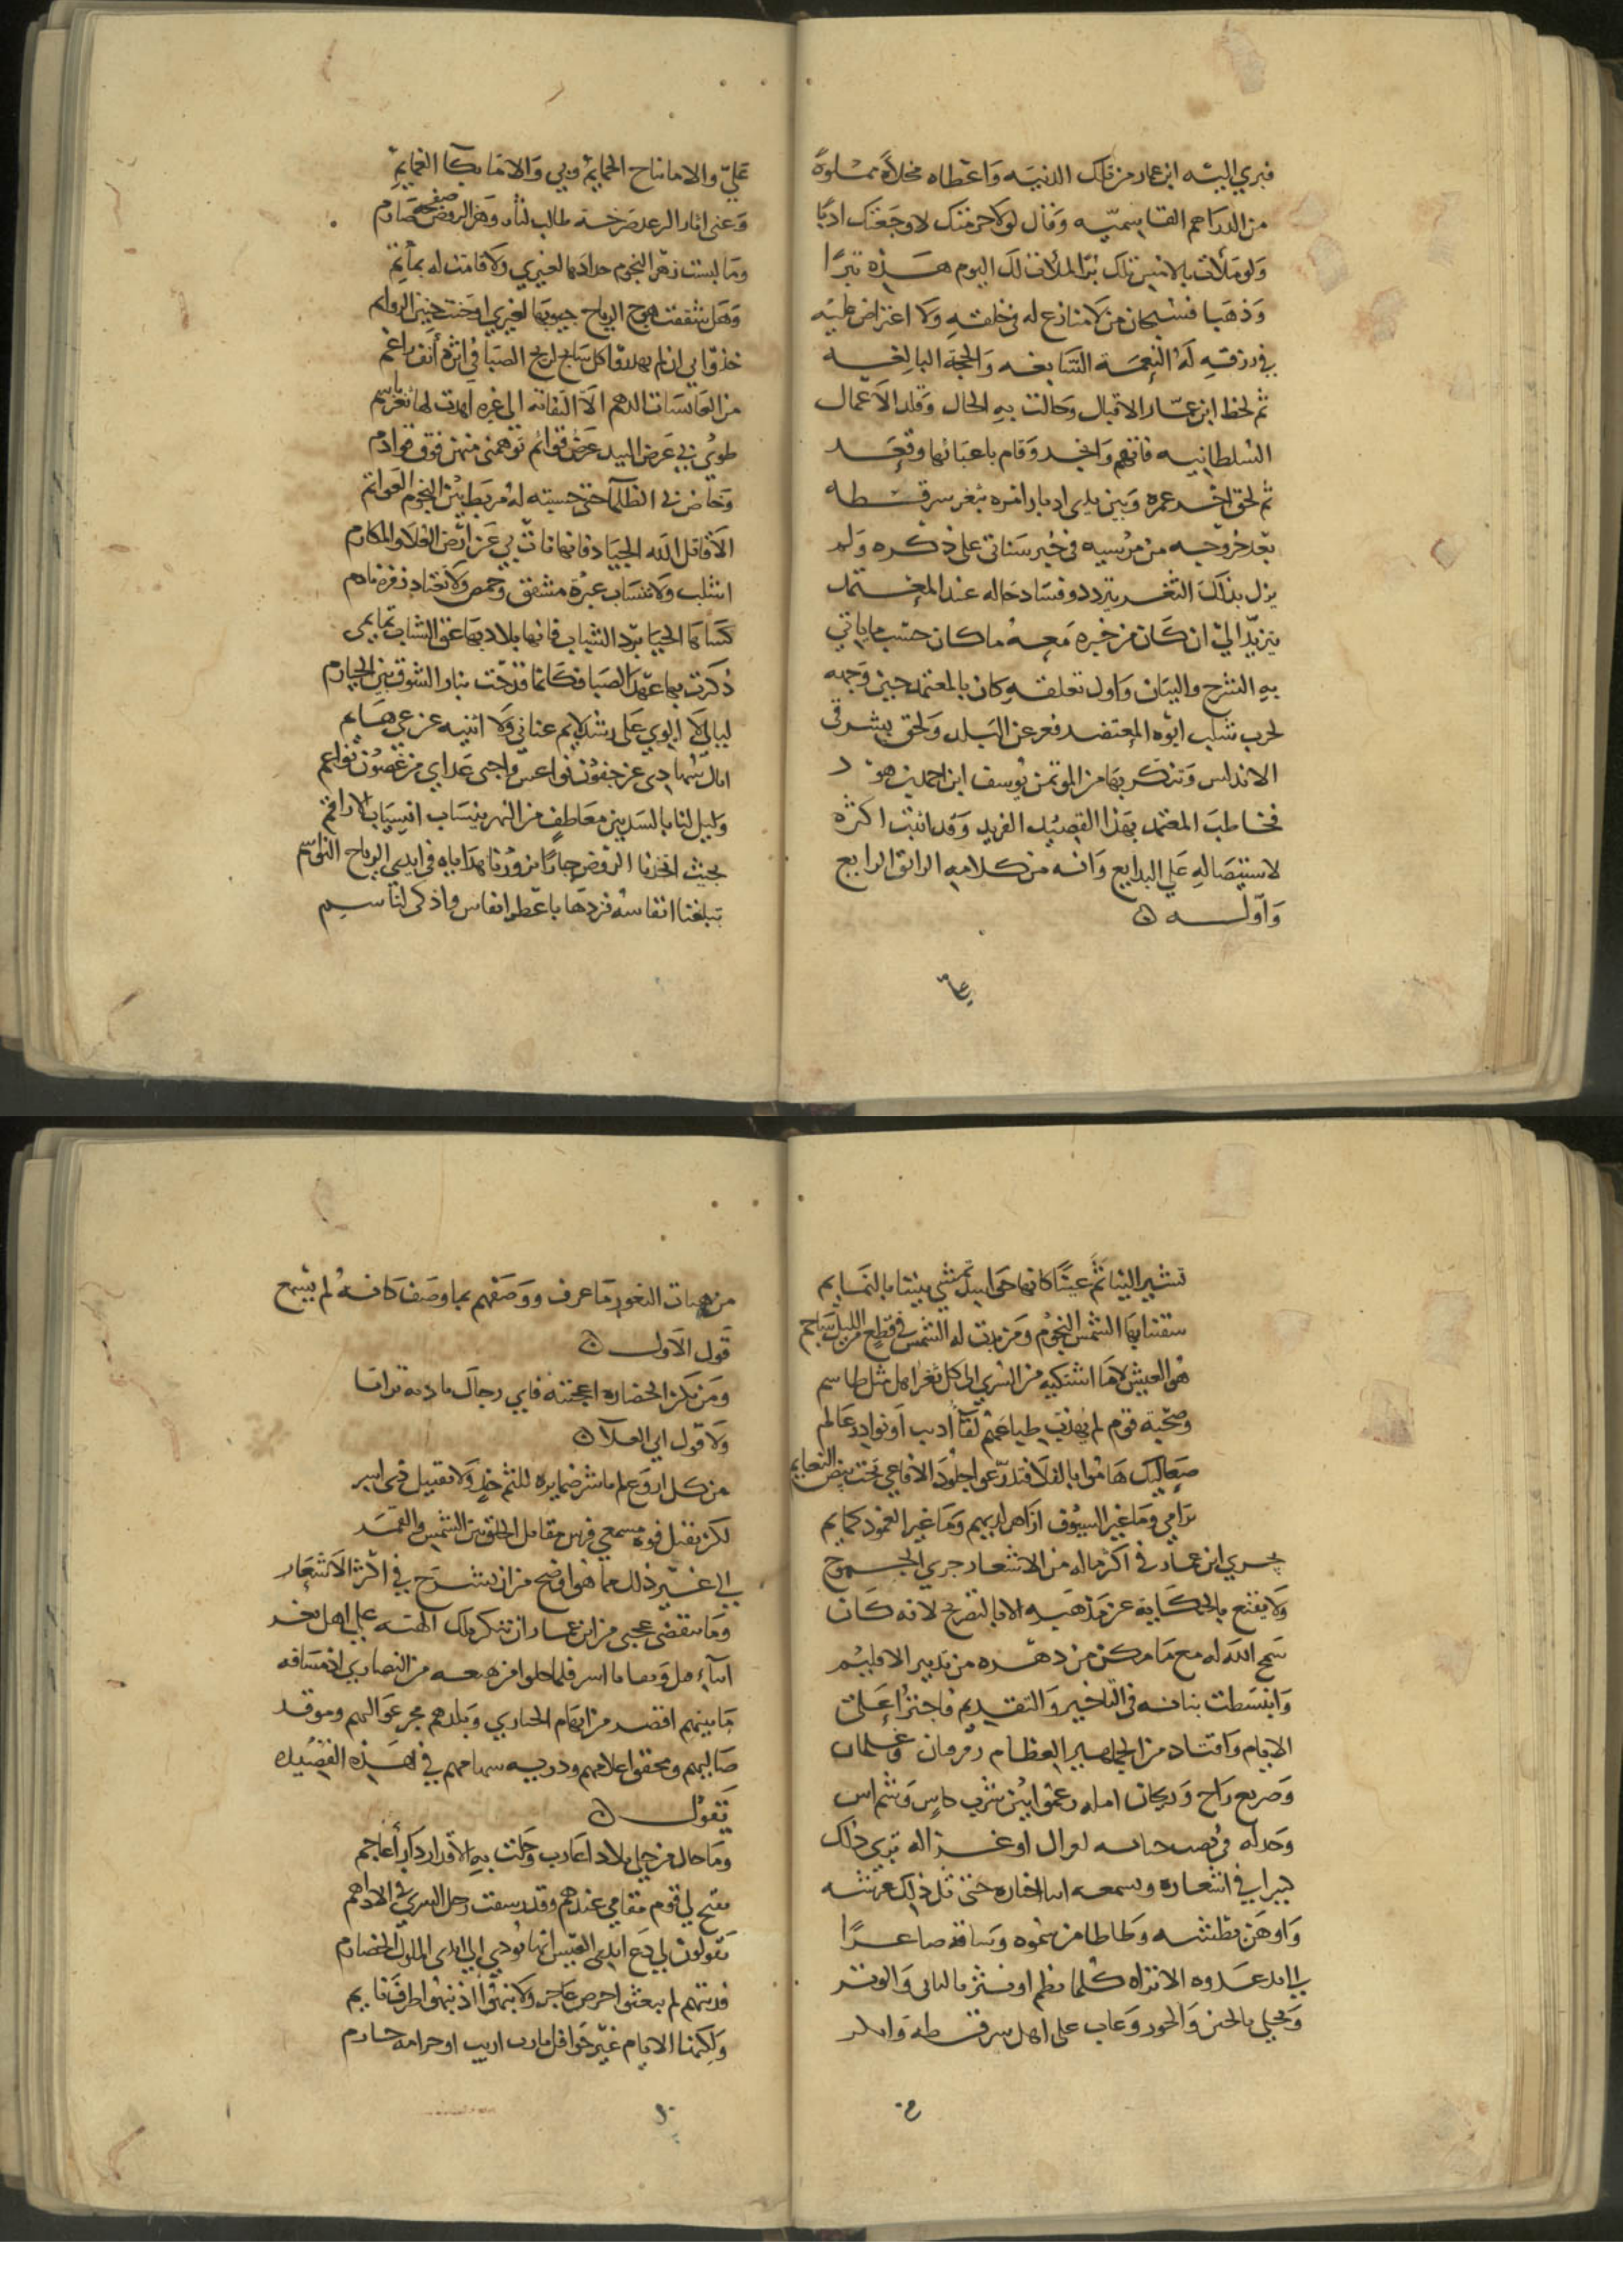 فبري اليه ابن عمار من تلك الدنيه واعطاه مخلاة مملوة
من الدراهم القاسمية وقال لولا حرمتك لاوجعتك ادبا
ولو ملأت بالامس تلك برا لملأت لك اليوم هذه تبرا
وذهبا فسبحان من لا منازع له في خلقه ولا اعتراض عليه
في رزقه له النعمة السابغه والحجة البالغه
ثم لحظ ابن عمار الاقبال وحالت به الحال وقلد الاعمال
السلطانيه فاتهم وانجد وقام باعبائها وقعد
ثم لحق اخر عمره وبين يدي ادبار امره بثغر سرقسطه
بعد خروجه من مرسيه في خبر سناتي على ذكره ولم
يزل بذلك الثغر يتردد وفساد حاله عند المعتمد
يتزيد الى ان كان من خبره معه ما كان حسب ما ياتي
به الشرح والبيان واول تعلقه كان بالمعتمد حين وجهه
لحرب شلب ابوه المعتضد ففر عن البلد ولحق بشرقي
الاندلس وتنكر بها من المؤتمن يوسف ابن احمد بن هود
فخاطب المعتمد بهذا القصيد الفريد وقد اثبت اكثره
لاستيصاله على البدايع وانه من كلامه الرائق الرايع
واوله
علي
علي والا ما نياح الحمايم وفي والا ما بكا الغمايم
وعني اثار الرعد صرخة طالب لثأر وهز البرق صفحة صارم
وما لبست زهر النجوم حدادها لغيري ولا قامت له بمأتم
وهل شققت هوج الرياح جيوبها لغيري او حنت حنين الروايم
خذوا بي ان لم يهدوا كل سابح لريح الصبا في اثره أنف راغم
من العابسات الدهم الا التفاتة الى غره اهدت لها ثغر باسم
طوى بي عرض البيد عرض قوائم توهمني منهن فوق قوادم
وخاض بي الظلما حتى حسبته له مربط بين النجوم العواتم
الا قاتل الله الجياد فانها نات بي عن ارض العلا والمكارم
اشلب ولا تنساب عبرة مشفق وحمص ولا تعتاد زفرة نادم
كساها الحيا برد الشباب فانها بلاد بها عق الشباب تمايمي
ذكرت بها عهد الصبا فكانما قدحت بنار الشوق بين الحيازم
ليالي لا الوي على رشد لايم عناني ولا اثنيه عن غي هايم
انال سهادي عن جفون نواعس واجني عذابي من غصون نواعم
وليل لنا بالسد بين معاطف من النهر ينساب انسياب الاراقم
بحيث اتخذنا الروض جارا تزورنا هداياه في ايدي الرياح النواسم
تبلغنا انفاسه فنردها باعطر انفاس واذكى لناسم
تشير الينا ثم عنا كانها حواسد تمشي بيننا بالنمايم
سقتنا بها الشمس النجوم ومن بدت له الشمس في قطع من الليل ساجم
هو العيش لا ما اشتكيه من السرى الى كل ثغر اهل مثل طاسم
وصحبة قوم لم يهذب طباعهم لقاء أديب او نوادر عالم
صعاليك هاموا بالفلا فتدرعوا جلود الافاعي تحت بيض النعايم
ندامي وما غير السيوف ازاهر لديهم وما غير الغمود كمايم
جري ابن عمار في اكثر ماله من الاشعار جري الجموح
ولا يقنع بالكناية عن مذهبه الا بالتصريح لانه كان
سمح الله له مع ما مكن من دهره من تدبير الاقليم
وانبسطت بنانه في التاخير والتقديم فاجترأ على
الايام واقتاد من الجماهير العظام زمر مان وغلمان
وصريع راح وريحان امله زعموا بين شرب كاس وشم اس
وحد له في نصب لغزال او غزاله تري ذلك
في اشعاره وسمعه اخباره حتى ثل ذلك عرشه
واوهن بطشه وطاطا من سموه وساقه صاغرا
الى يد عدوه الا تراه كلما نظم او نثر ما لباني والوتر
ويحلي بالحسن والحور وعاب على اهل سرقسطه وانكر
من هبات الثغور ما عرف ووصفهم بما وصف كانه لم يسمع
قول الاول
ومن تكن الحضارة اعجبته فاي رجال بادية ترانا
ولا قول ابي العلا
من كل اروع لم ماشر ضمايره للثم خد ولا تقبيل ذي اشر
لكن تقبل فوه مسمعي فرس مقابل الخلق بين الشمس والقمر
الى غير ذلك مما هو اوضح من ان يشرح في اكثر الاشعار
وما تنقضي عجبي من ابن عمار ان تنكر تلك الهيئه على اهل ثغر
من النصاري اذ مسافه
ما بينهم اقصر من ابهام الحباري وبلدهم مجر عواليهم وموقد
صاليهم ومخفق اعلامهم في هذه القصيده
يقول
وما حال من خلى بلاد اعارب وحلت به الاقدار دار أعاجم
يقبح لي قوم مقامي عندهم وقد رسفت رجل السري في الاداهم
يقولون لي دع ايدي العيس انها تؤدي الى ايدي الملوك الخضارم
فديتهم لم يبعثوا حرص عاجز ولا نبهوا اذ نبهوا طرف نايم
ولكنها الايام غير حوافل بارب اريب او حزامة حازم